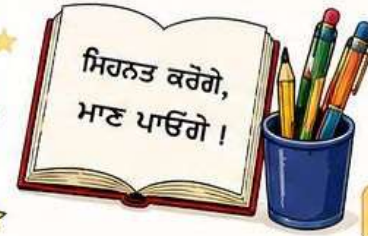 ਸਿਹਨਤ ਕਰੋਗੇ,
ਮਾਣ ਪਾਓਗੇ !